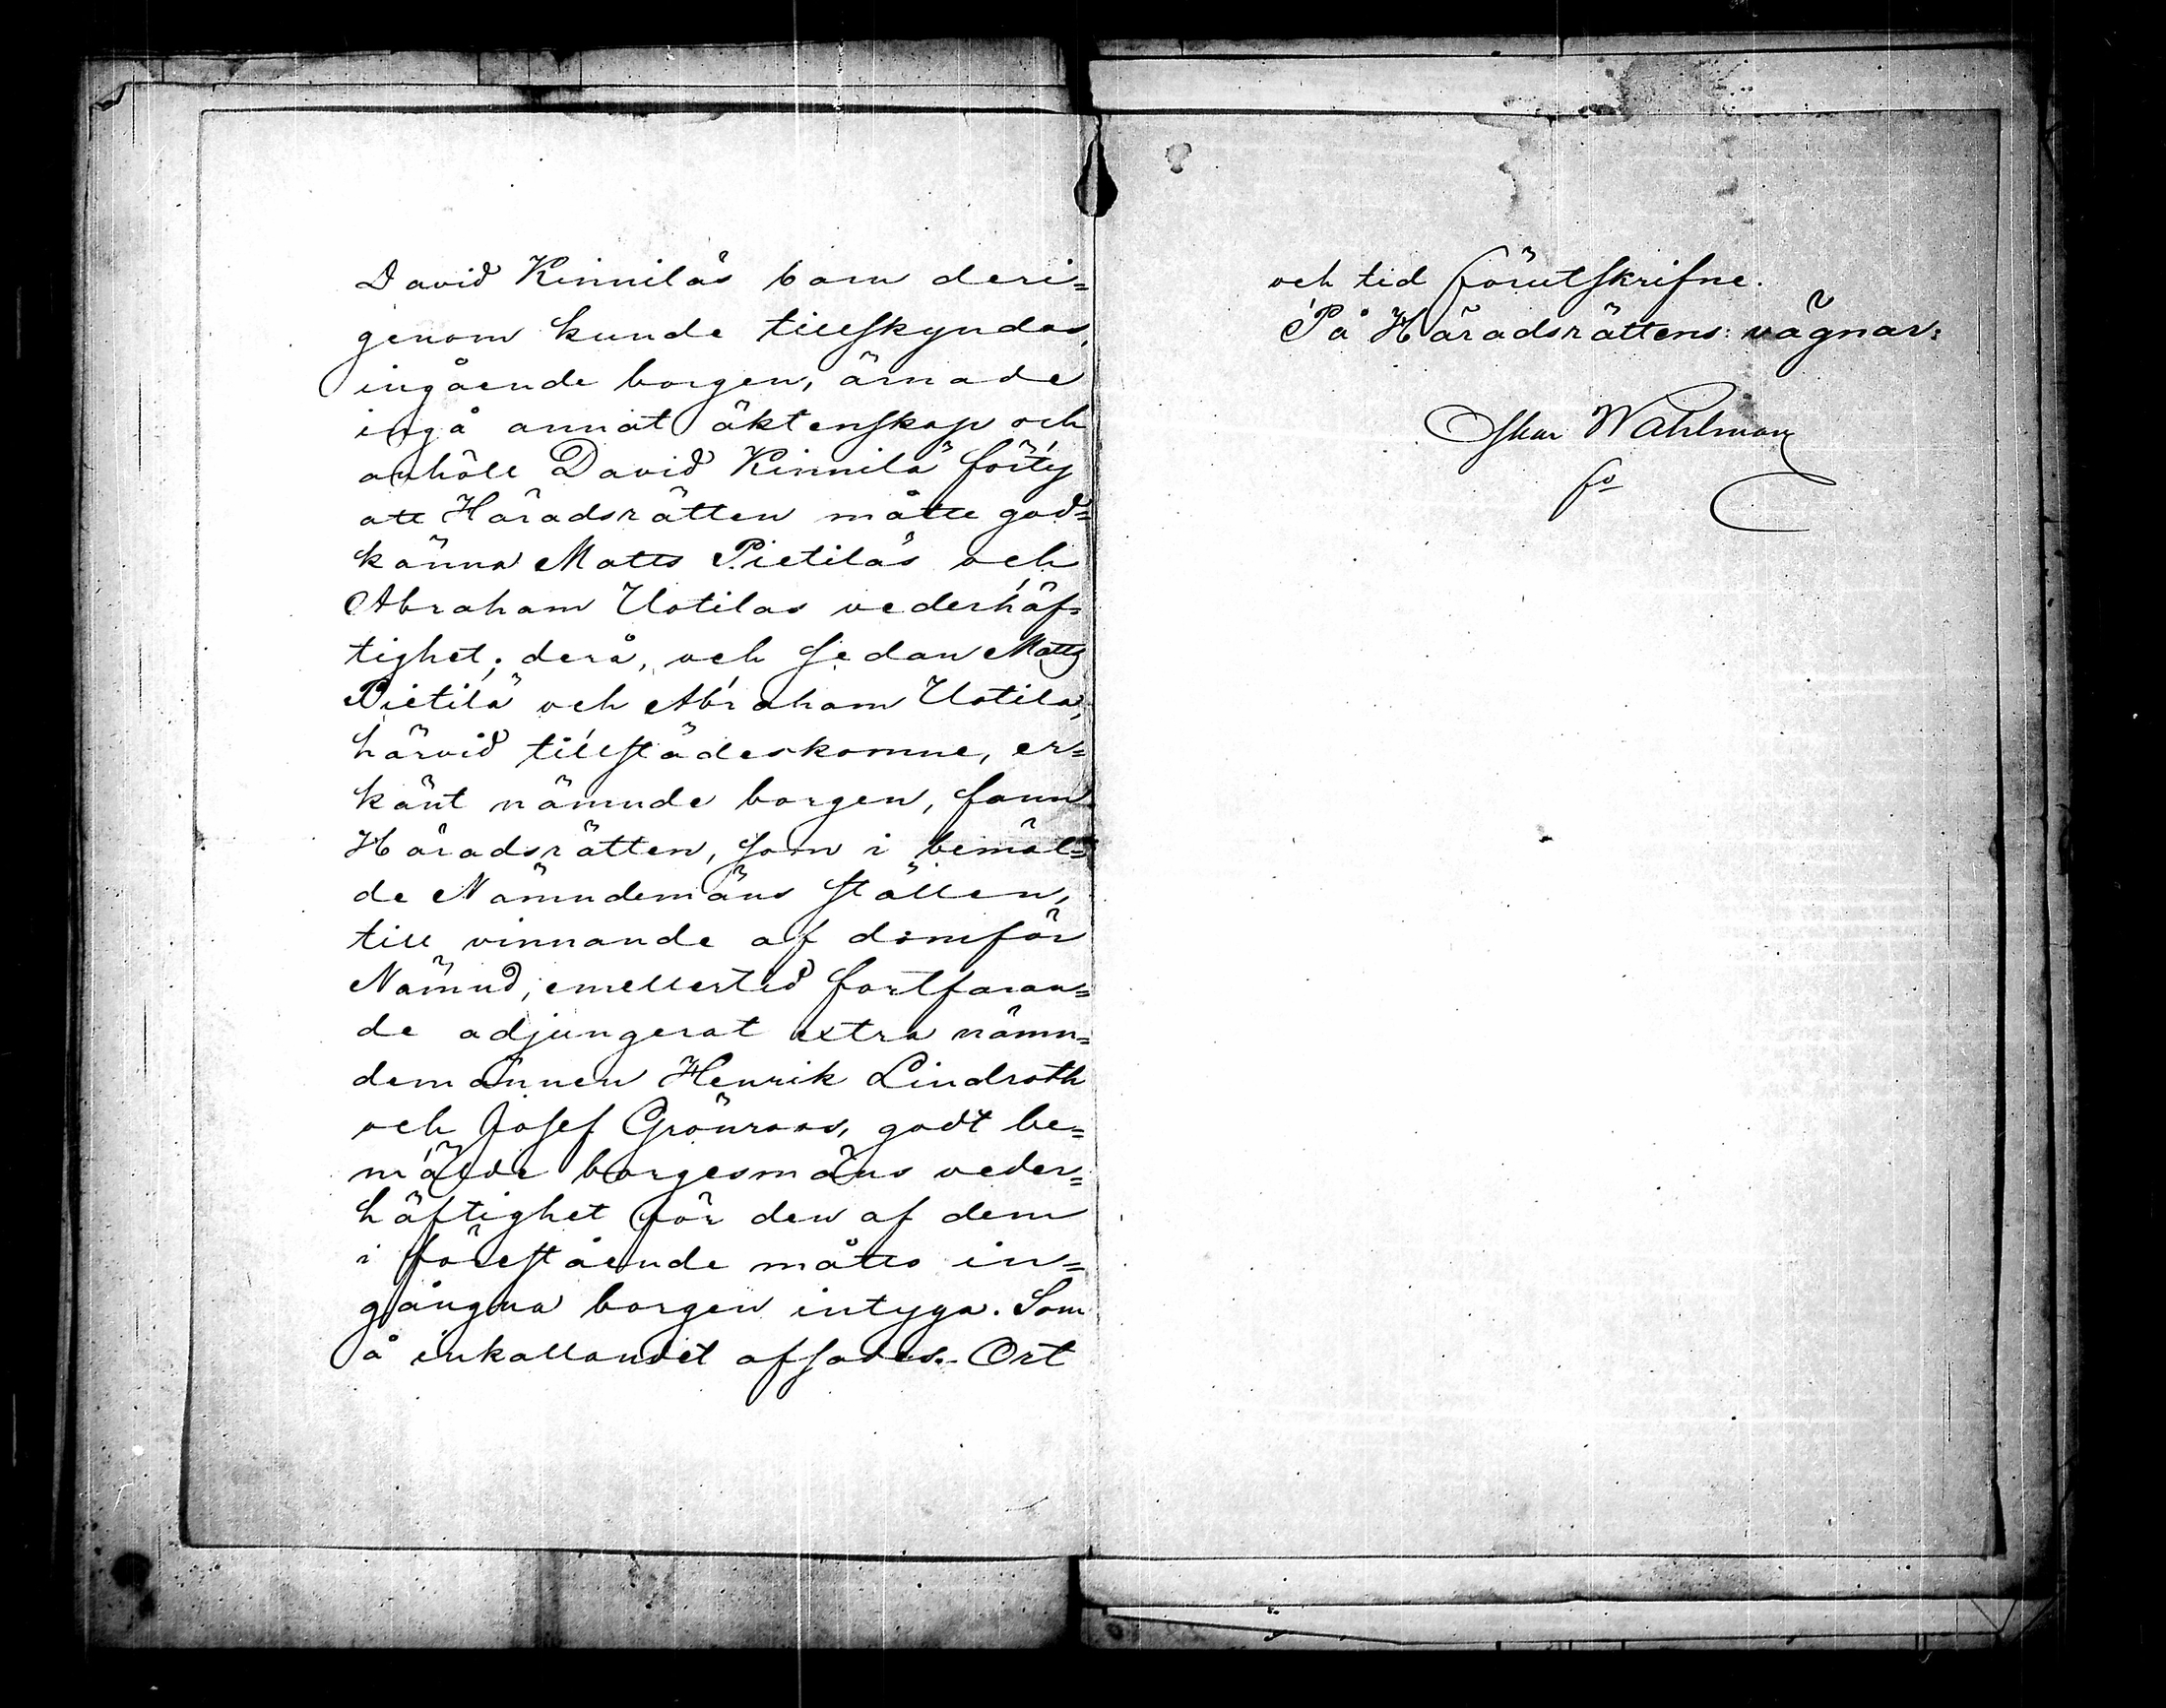 David Kinniläs barn deri=
genom kunde tillskyndas,
ingående borgen, ärnade
ingå annat äktenskap och
anhöll David Kinnilä förty
att Häradsrätten måtte god=
känna Matts Pietiläs och
Abraham Uotilas vederhäf=
tighet; derå, och sedan Matts
Pietilä och Abraham Uotila,
härvid tillstädeskomne, er=
känt nämnde borgen, fann
Häradsrätten, som i bemäl=
de Nämndemäns ställen,
till vinnande af domför
Nämnd, emellertid fortfaran=
de adjungerat extra näm̄n=
demännen Henrik Lindroth
och Josef Grönroos, godt be=
mälde borgesmäns veder=
häftighet för den af dem
i förestående måtto in=
gångna borgen intyga. Som
å inkallandet afsades. Ort
och tid förutskrifne.
På Häradsrättens vägnar:
Oskar Wahlman